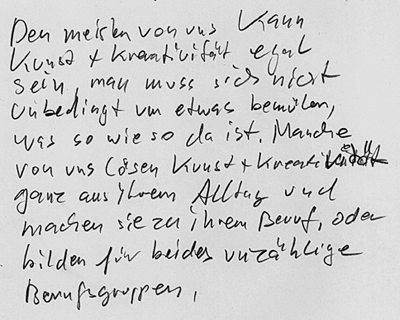 Den meisten von uns kann
Kunst + Kreativität egal
sein, man muss sich nicht
unbedingt um etwas bemühen,
was so wie so da ist. Manche
von uns lösen Kunst + Kreativität
ganz aus ihrem Alltag und
machen sie zu ihrem Beruf, oder
bilden für beides unzählige
Berufsgruppen,